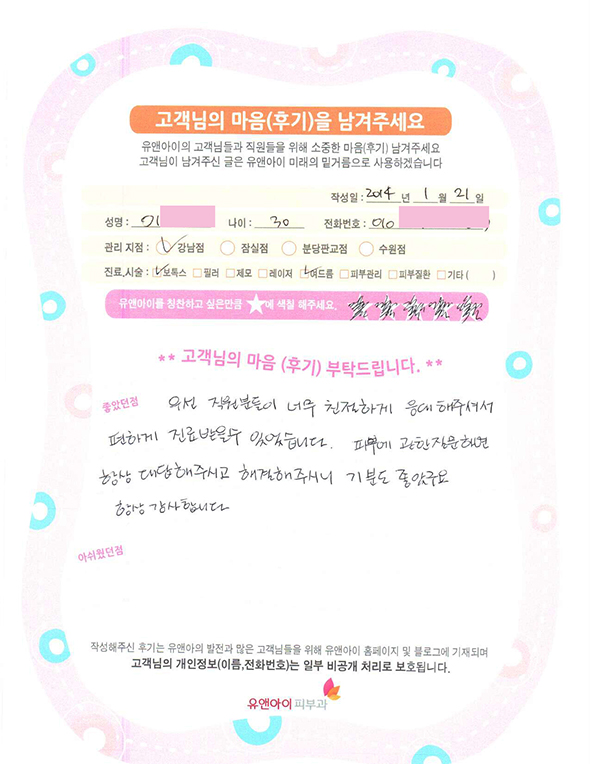 고객님의 마음(후기)을 남겨주세요
유앤아이의 고객님들과 직원들을 위해 소중한 마음(후기) 남겨주세요
고객님이 남겨주신 글은 유앤아이 미래의 밑거름으로 사용하겠습니다
작성일 : 2014 년 1 월 21 일
성명 : 나이 : 30 전화번호 : 010
관리 지점 : 강남점 잠실점 분당판교점 수원점
진료,시술 : 보톡스 필러 제모 레이저 여드름 피부관리 피부질환 기타 ( )
유앤아이를 칭찬하고 싶은만큼 ★에 색칠 해주세요.
** 고객님의 마음 (후기) 부탁드립니다. **
좋았던점 우선 직원분들이 너무 친절하게 응대해주셔서
편하게 진료받을수 있었습니다. 피부에 관한질문해면
항상 대답해주시고 해결해주시니 기분도 좋았구요
항상 감사합니다
아쉬웠던점
작성해주신 후기는 유앤아의 발전과 많은 고객님들을 위해 유앤아이 홈페이지 및 블로그에 기재되며
고객님의 개인정보(이름,전화번호)는 일부 비공개 처리로 보호됩니다.
유앤아이 피부과